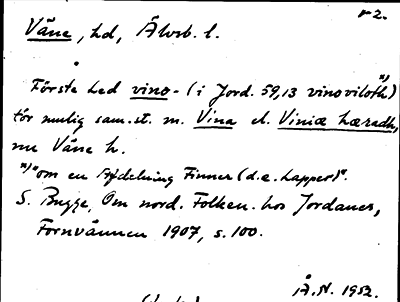 r 2.
Väne, hd, Älvsb. l.
Förste led vino- (i Jord. 59,13 vinoviloth *))
tör mulig sam.st. m. Vina el. Viniæ hæradh,
nu Väne h.
*) "om en Afdelning Finner (d.e. Lapper)".
S. Bugge, Om nord. Folken. hos Jordanes,
Fornvännen 1907, s. 100.
Å. N. 1952.